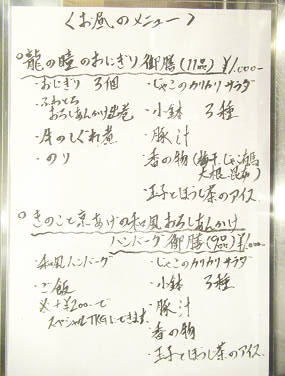 〈お昼のメニュー〉
○龍の瞳のおにぎり御膳(11品)¥1,000-
・おにぎり 3個
・ふわとろ
おろしあんかけ出巻
・牛のしぐれ煮
・のり
・じゃこのカリカリサラダ
・小鉢 3種
・豚汁
・香の物(梅干、じゃこ
大根、昆布)
・玉子とほうじ茶のアイス
○きのこと京あげの和風おろしあんかけ
ハンバーグ御膳(9品)¥1,000-
・和風ハンバーグ
・ご飯
※+¥200-で
スペシャルTKGにできます。
・じゃこのカリカリサラダ
・小鉢 3種
・豚汁
・香の物
・玉子とほうじ茶のアイス